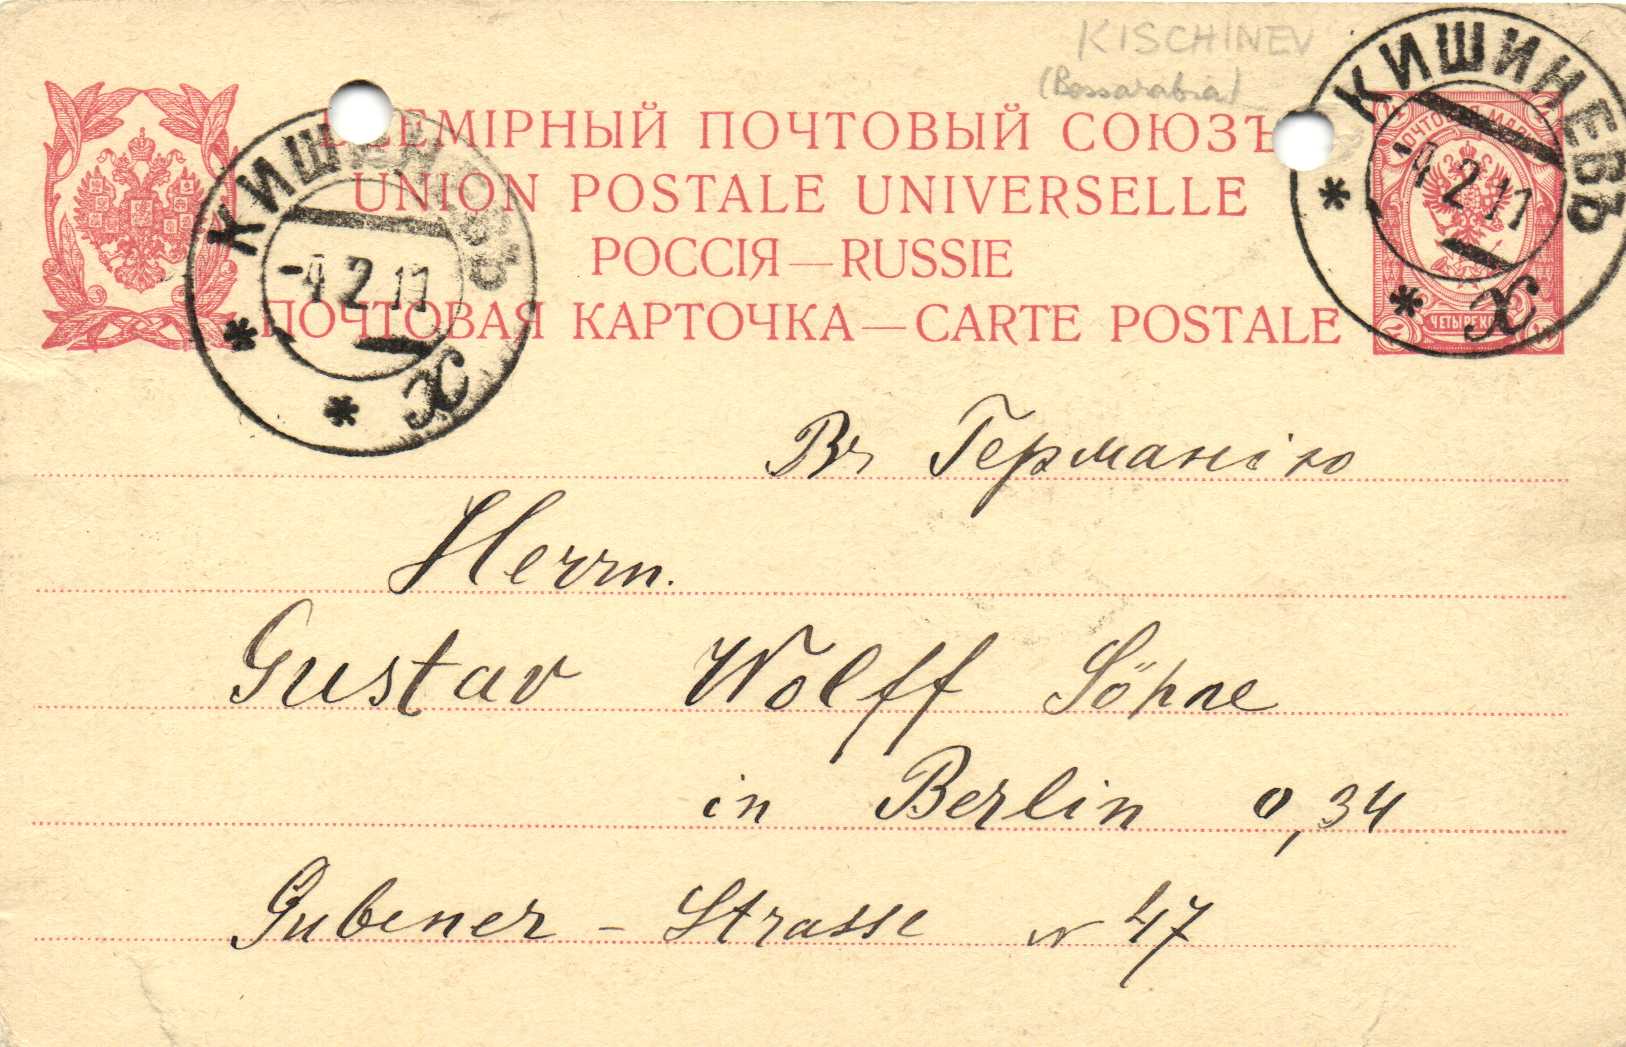 KISCHINEV
(Bessarabia)
ВСЕМІРНЫЙ ПОЧТОВЫЙ СОЮЗЪ
UNION POSTALE UNIVERSELLE
РОССІЯ — RUSSIE
ПОЧТОВАЯ КАРТОЧКА — CARTE POSTALE
КИШИНЕВЪ
-4 2 11
* * X
КИШИНЕВЪ
-4 2 11
* * X
ЧЕТЫРЕ
Въ Германію
Herrn.
Gustav Wolff Söhne
in Berlin O, 34
Gubener - Strasse N 47